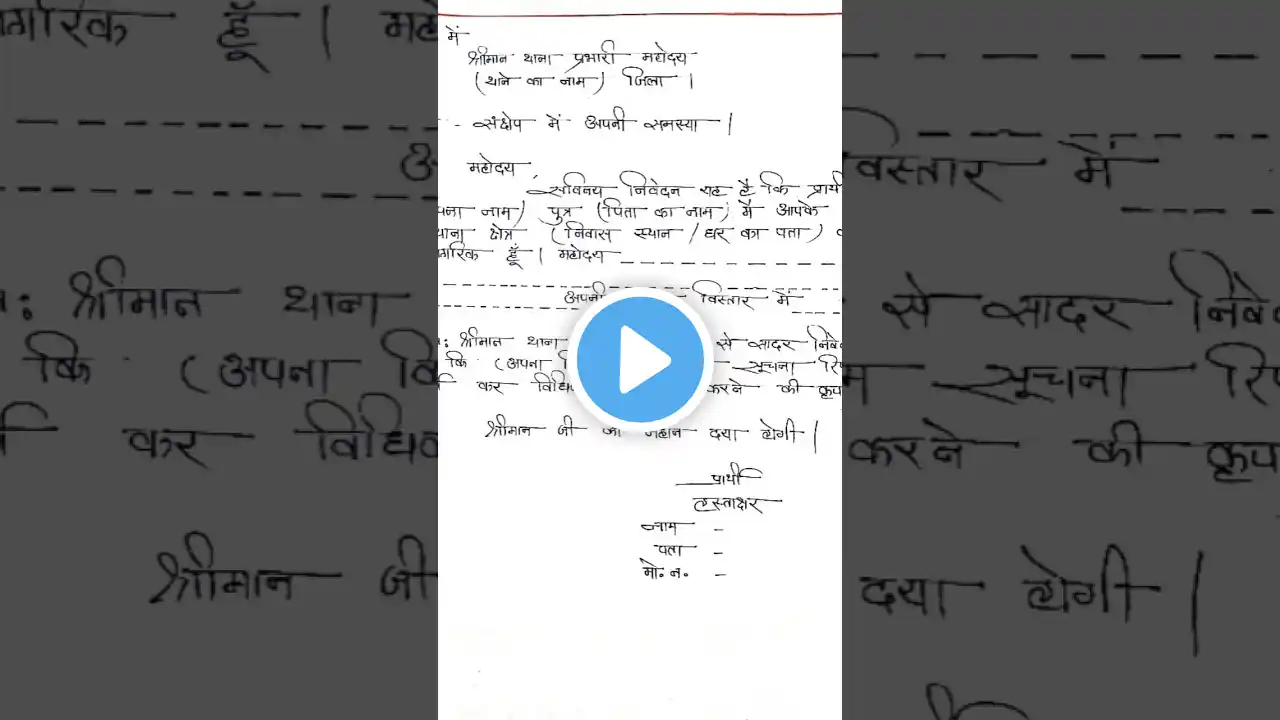 में
श्रीमान थाना प्रभारी महोदय
(थाने का नाम) जिला |
संक्षेप में अपनी समस्या |
महोदय
सविनय निवेदन यह है कि प्रार्थी
पना नाम) पुत्र (पिता का नाम) मैं आपके
थाना क्षेत्र (निवास स्थान / घर का पता) क
गरिक हूँ | महोदय
अपनी विस्तार में
: श्रीमान थाना से सादर निवे
कि (अपना सूचना रि
कर विधि करने की कृप
श्रीमान जी की महान दया होगी |
प्रार्थी
हस्ताक्षर
नाम -
पता -
मो. न. -